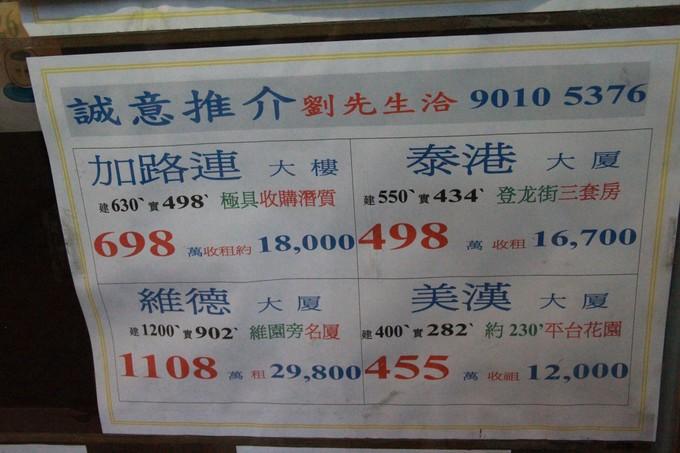 誠意推介 劉先生洽 9010 5376
加路連 大樓
建630` 實498` 極具收購潛質
698 萬 收租約 18,000
泰港 大廈
建550` 實434` 登龙街三套房
498 萬 收租 16,700
維德 大廈
建1200` 實902` 維園旁名厦
1108 萬 租 29,800
美漢 大廈
建400` 實282` 約230'平台花園
455 萬 收祖 12,000